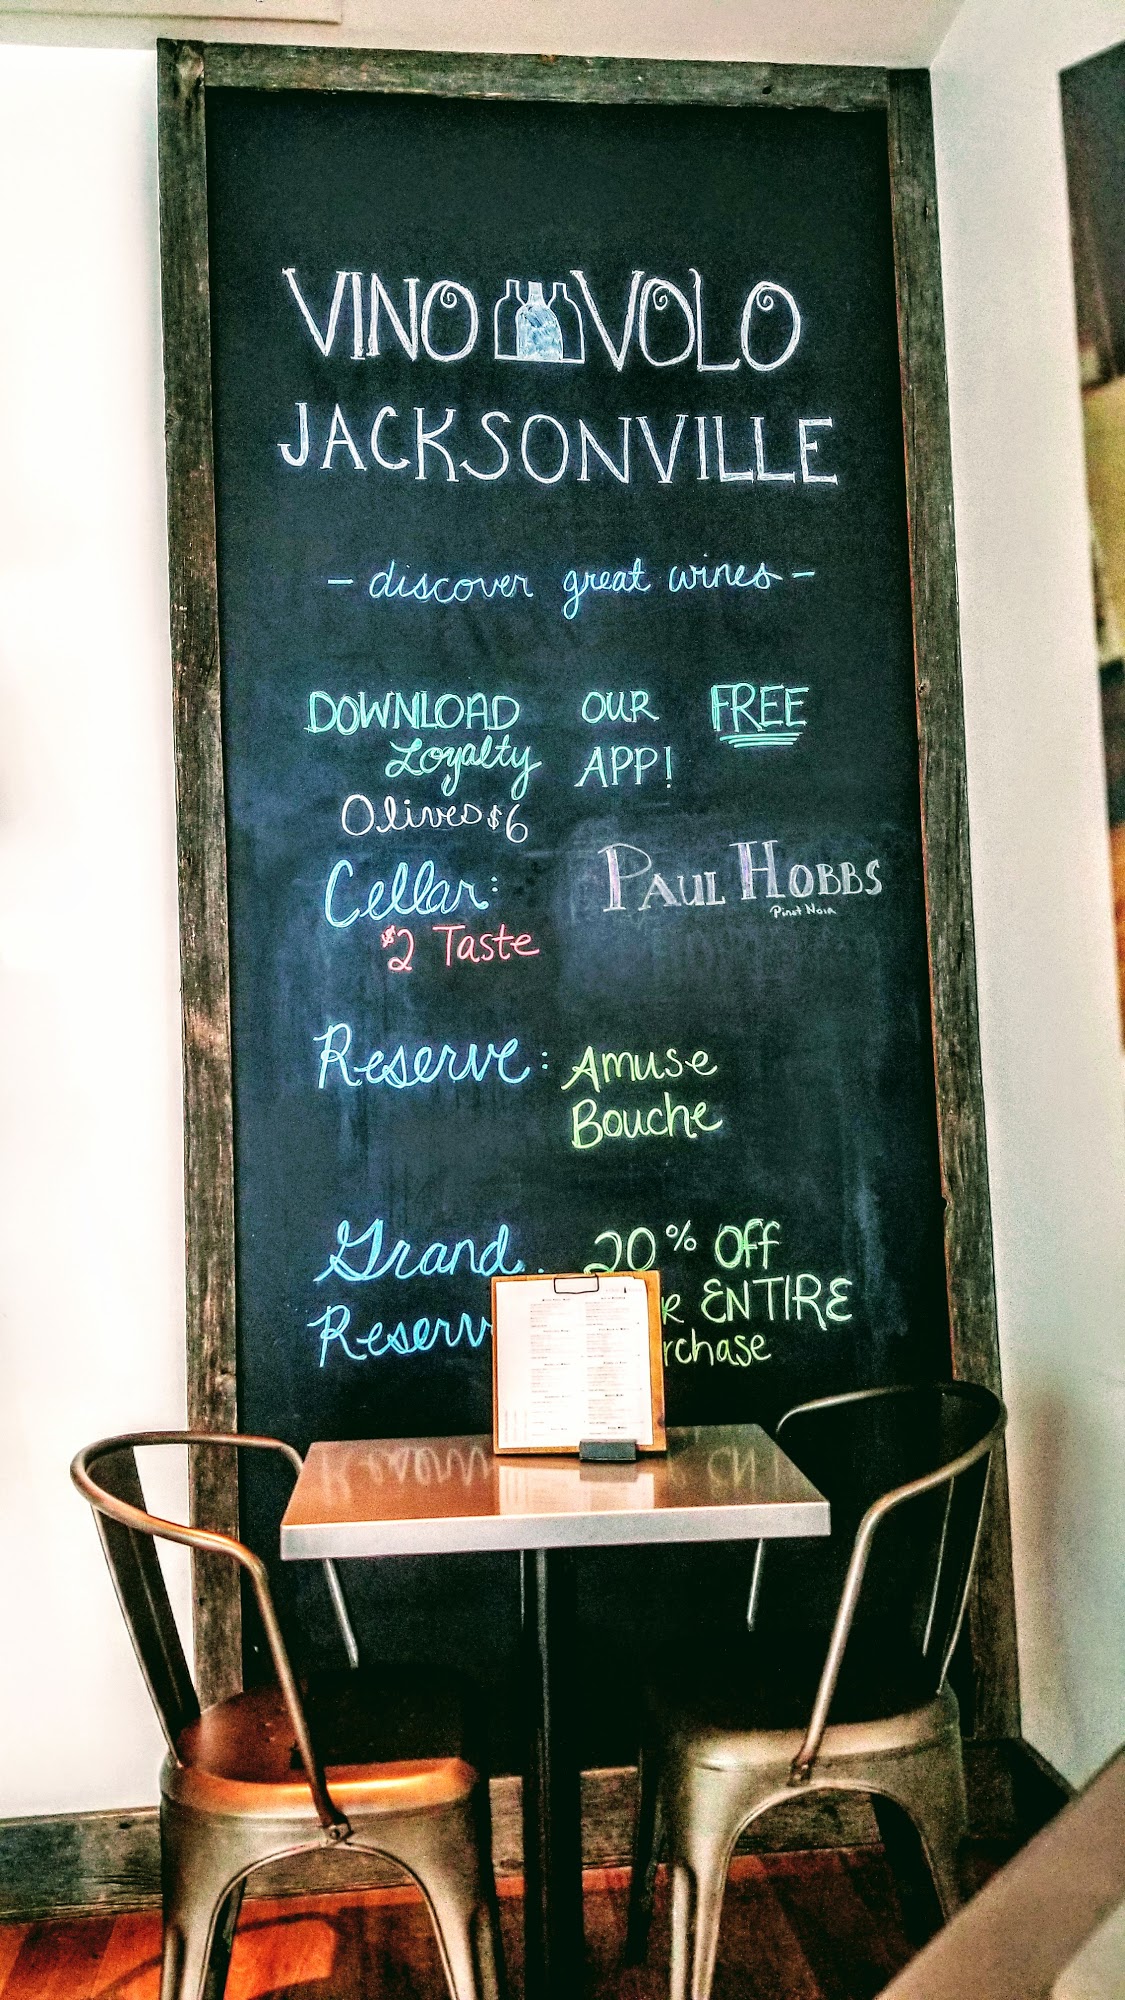 VINO VOLO
JACKSONVILLE
- discover great wines -
DOWNLOAD OUR FREE
Loyalty APP!
Olives $6
Cellar: PAUL HOBBS
Pinot Noir
$2 Taste
Reserve: Amuse
Bouche
Grand 20% Off
Reserv R ENTIRE
rchase